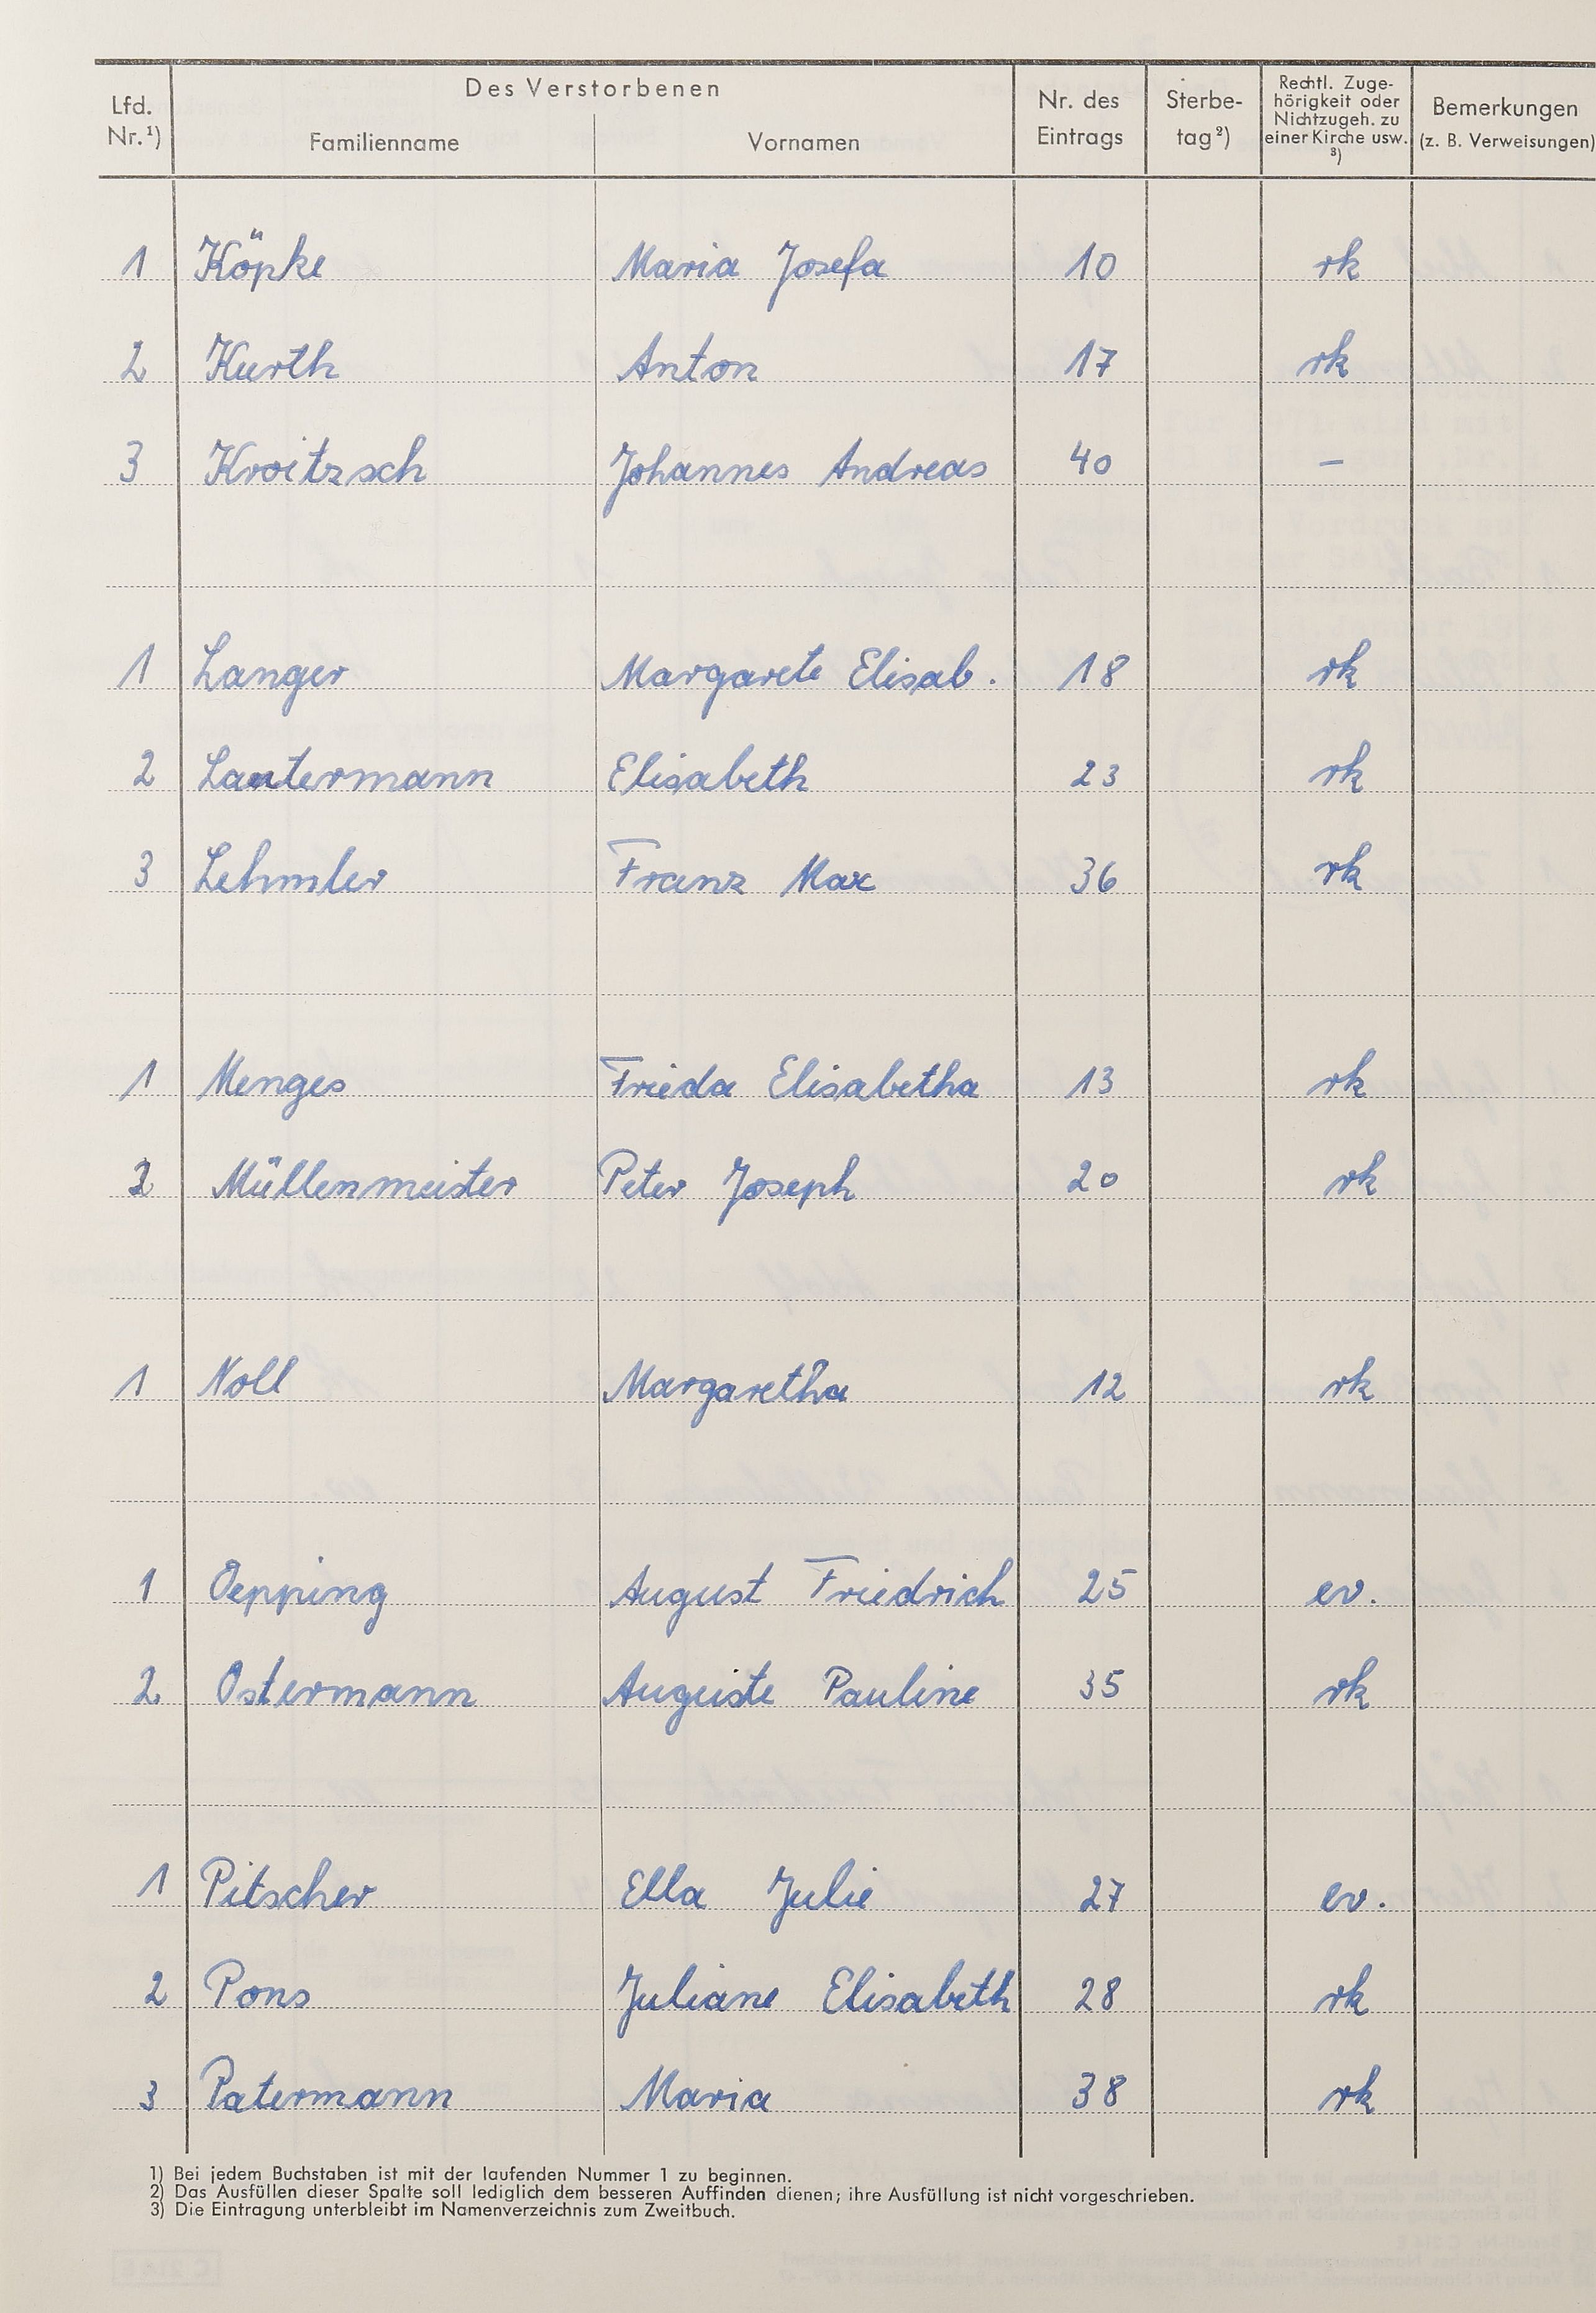 Des Verstorbenen
Lfd. Nr.¹) Familienname Vornamen Nr. des Eintrags Sterbe-tag²) Rechtl. Zuge-hörigkeit oder Nichtzugeh. zu einer Kirche usw. ³) Bemerkungen (z. B. Verweisungen)
1 Köpke Maria Josefa 10 rk
2 Kurth Anton 17 rk
3 Kroitzsch Johannes Andreas 40 –
1 Langer Margarete Elisab. 18 rk
2 Lantermann Elisabeth 23 rk
3 Lehmler Franz Max 36 rk
1 Menges Frieda Elisabetha 13 rk
2 Müllenmeister Peter Joseph 20 rk
1 Noll Margaretha 12 rk
1 Oepping August Friedrich 25 ev.
2 Ostermann Auguste Pauline 35 rk
1 Pitscher Ella Julie 27 ev.
2 Pons Juliane Elisabeth 28 rk
3 Patermann Maria 38 rk
1) Bei jedem Buchstaben ist mit der laufenden Nummer 1 zu beginnen.
2) Das Ausfüllen dieser Spalte soll lediglich dem besseren Auffinden dienen; ihre Ausfüllung ist nicht vorgeschrieben.
3) Die Eintragung unterbleibt im Namenverzeichnis zum Zweitbuch.